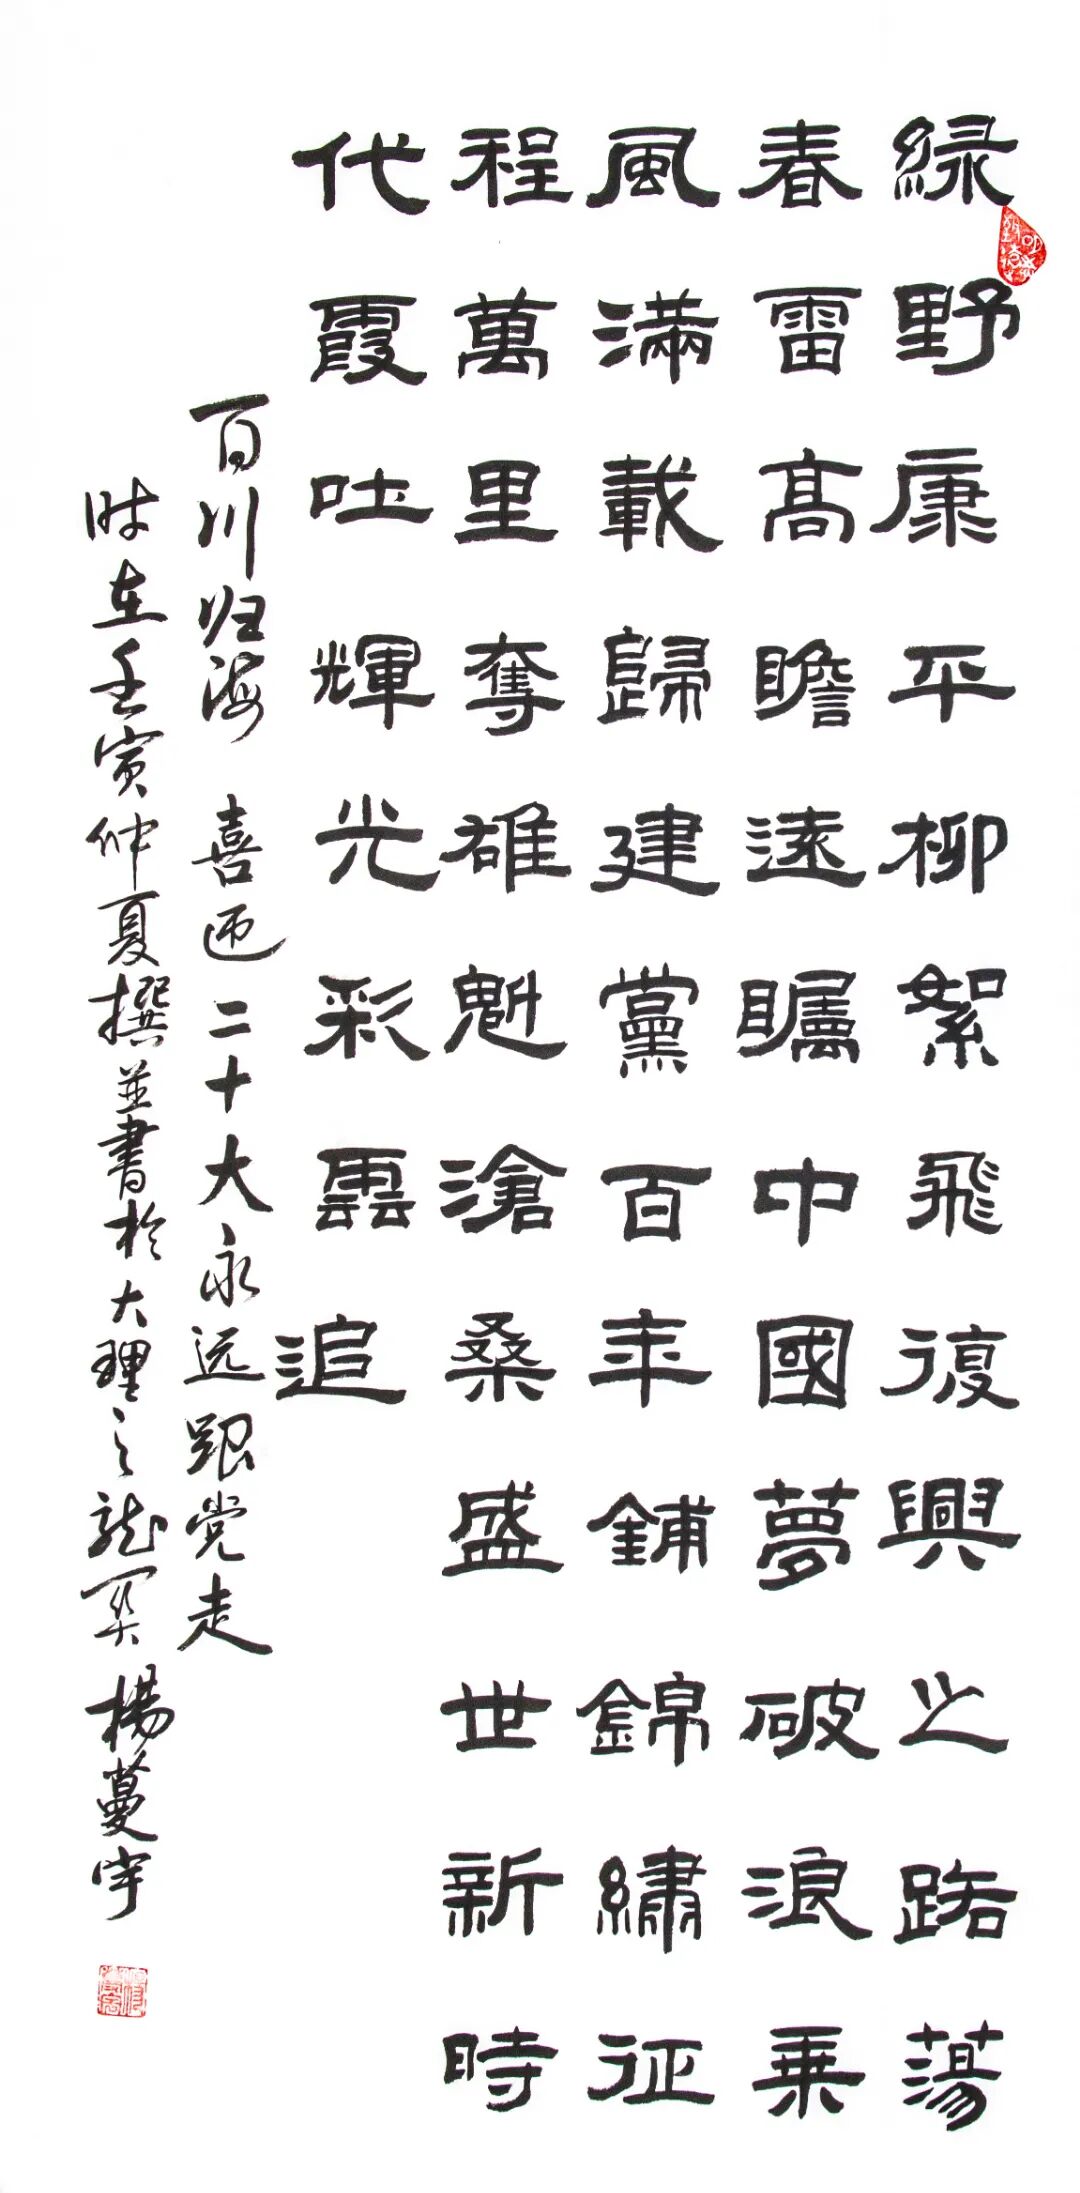 緑野康平柳絮飛復興之路蕩
春雷髙瞻遠矚中國夢破浪乘
風滿載歸建黨百年鋪錦繡征
程萬里奪雄魁滄桑盛世新時
代霞吐輝光彩雲追
百川归海 喜迎二十大永远跟党走
时在壬寅仲夏撰並書於大理之龙关 楊蔓宇